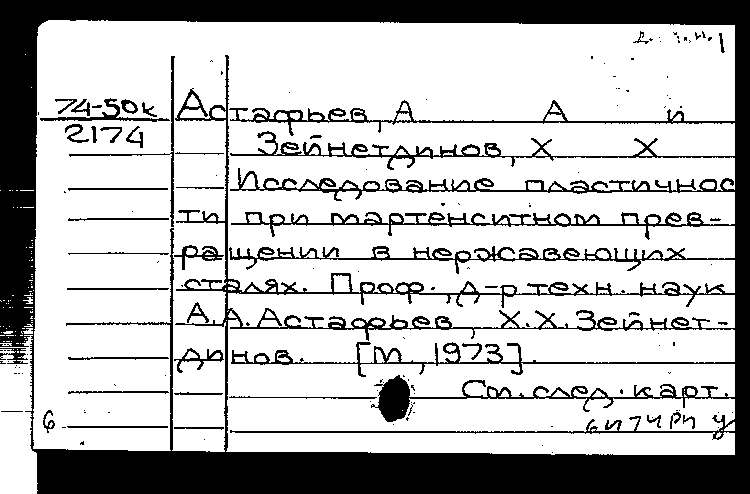 74-50к
2174
Астафьев, А А и
Зейнетдинов, Х Х
Исследование пластичнос
ти при мартенситном прев-
ращении в нержавеющих
сталях. Проф., д-р техн. наук
А.А.Астафьев, Х.Х.Зейнет-
динов. [М., 1973].
См. след. карт.
6